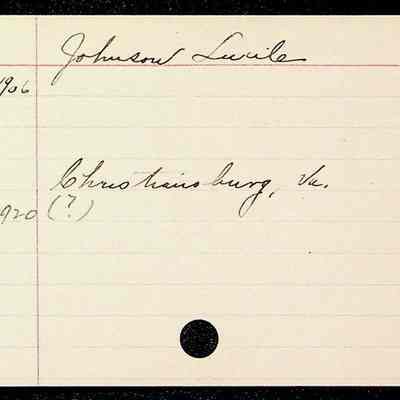 Johnson Lucile
1906
Christiansburg, Va.
920 (?)